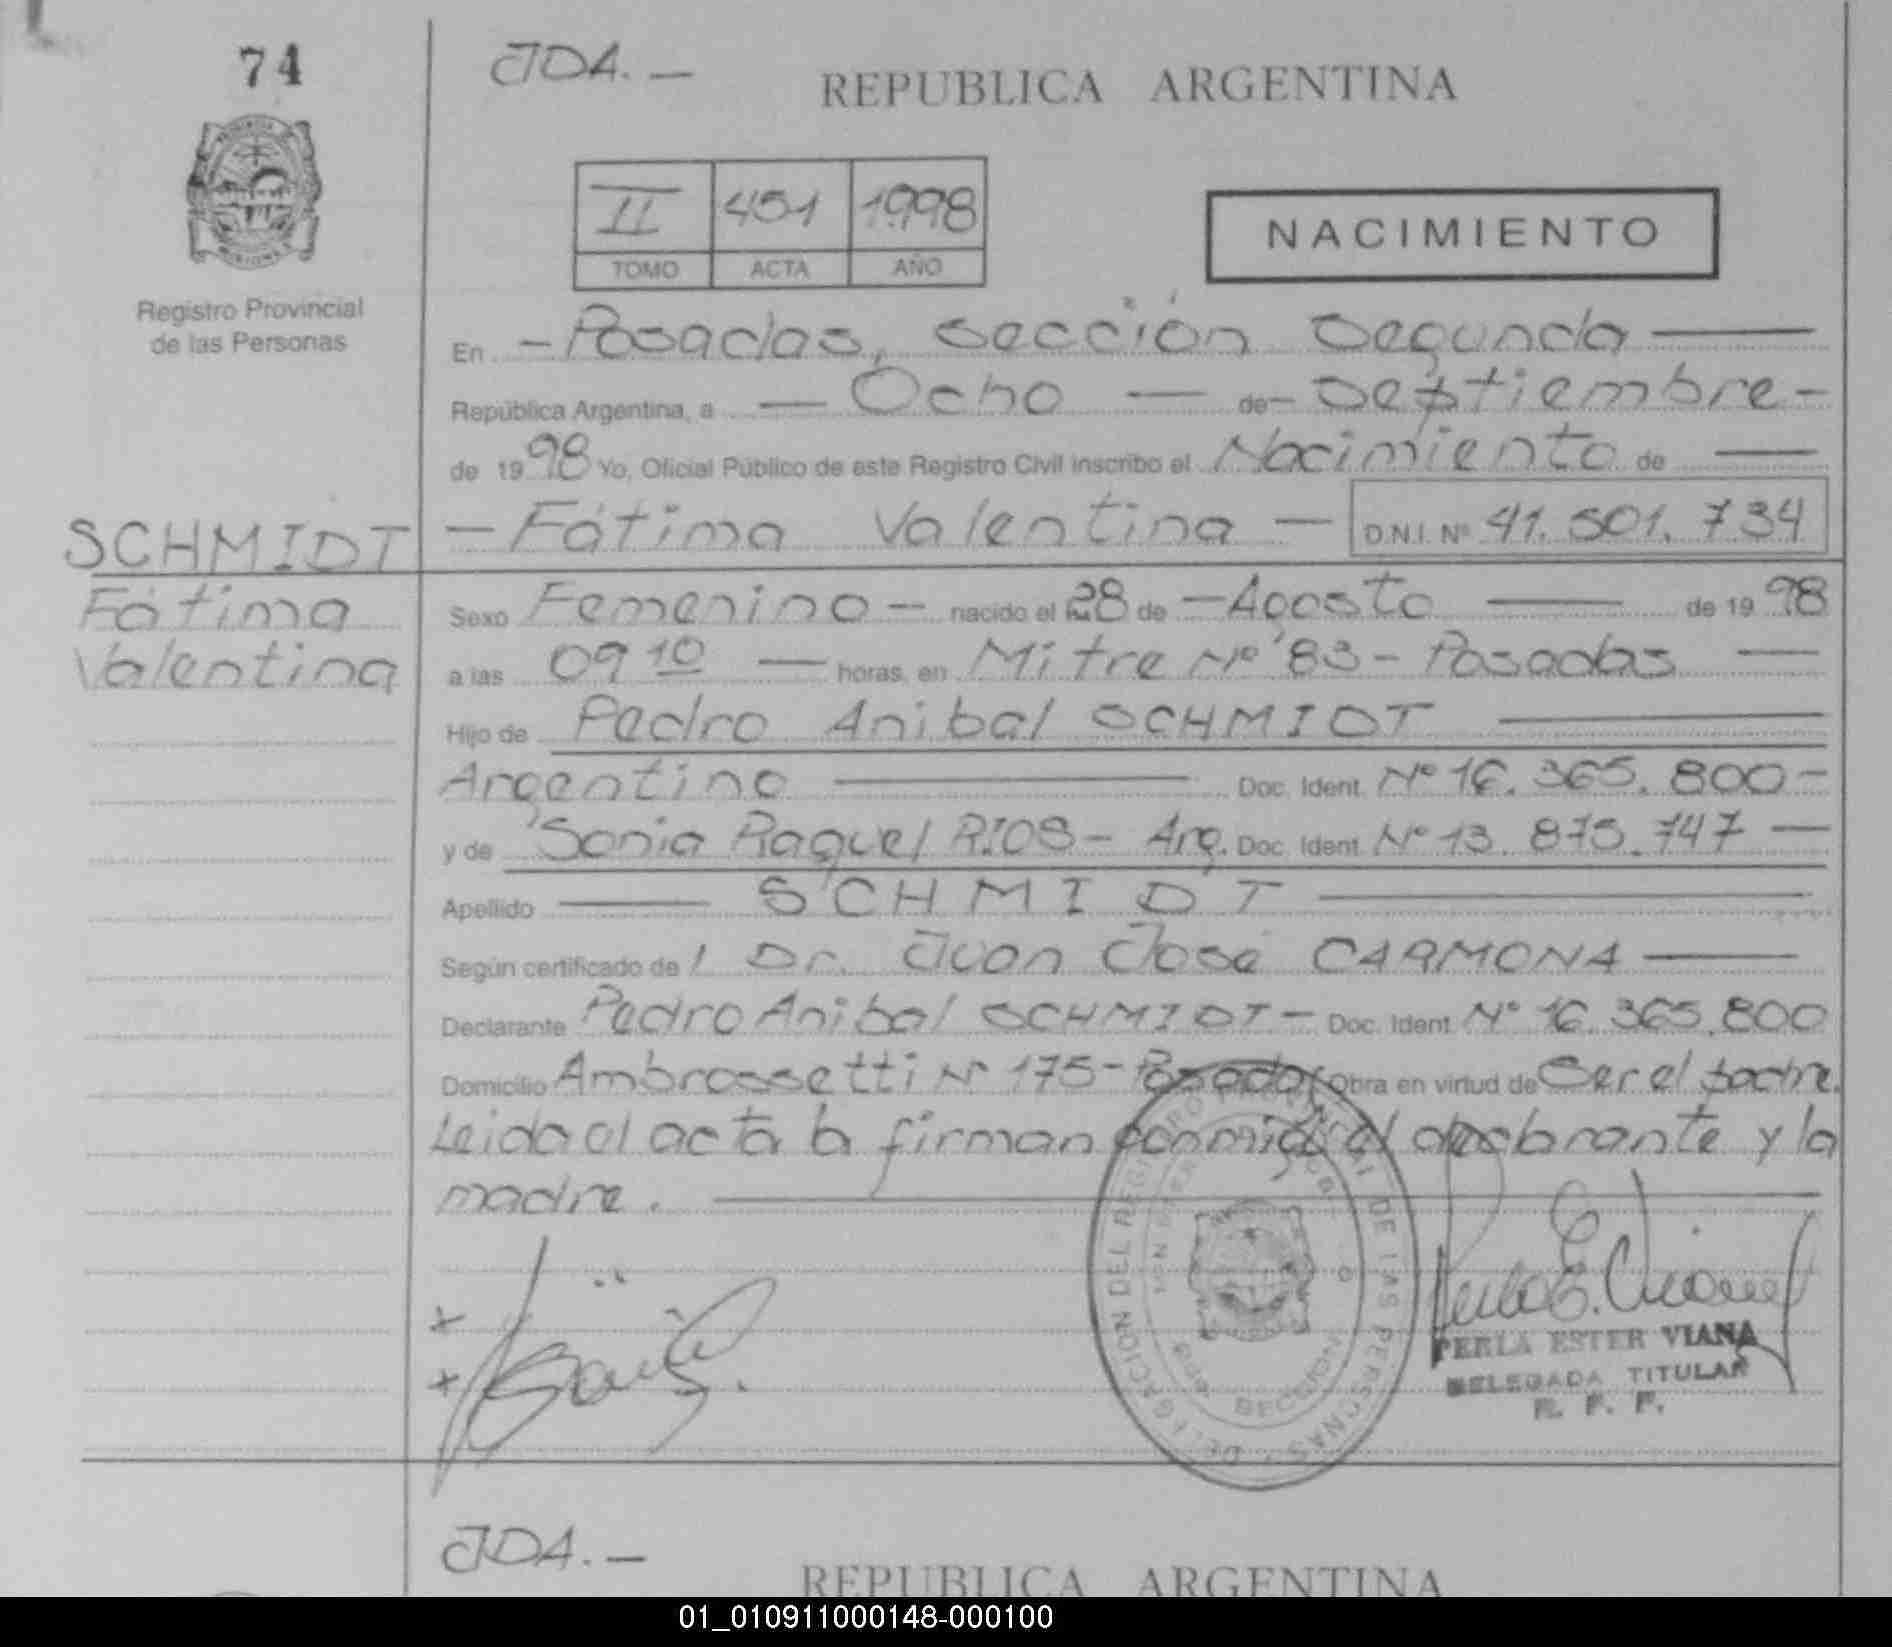 74
JDA.—
REPUBLICA ARGENTINA
II 451 1998
TOMO ACTA AÑO
NACIMIENTO
Registro Provincial
de las Personas
En - Posadas, sección Segunda —
República Argentina, a — Ocho — de - Septiembre -
de 1998 Yo, Oficial Público de este Registro Civil inscribo el Nacimiento de —
SCHMIDT
Fátima
Valentina
— Fátima Valentina — D.N.I. Nº 41.501.734
Sexo Femenino - nacido el 28 de - Agosto — de 1998
a las 09 10 — horas, en Mitre Nº 83 - Posadas —
Hijo de Pedro Anibal SCHMIDT —
Argentino — Doc. Ident. Nº 16.365.800 -
y de Sonia Raquel RIOS - Arg. Doc. Ident. Nº 13.875.747 —
Apellido — SCHMIDT —
Según certificado de l Dr. Juan José CARMONA —
Declarante Pedro Anibal SCHMIDT - Doc. Ident. Nº 16.365.800
Domicilio Ambrossetti Nº 175 - Posadas Obra en virtud de Ser el padre.
Leida el acta la firman conmigo el declarante y la
madre. —
DELEGACION DEL REGISTRO PROVINCIAL DE LAS PERSONAS
PERLA ESTER VIANA
DELEGADA TITULAR
R. P. P.
JDA.—
REPUBLICA ARGENTINA
01_010911000148-000100